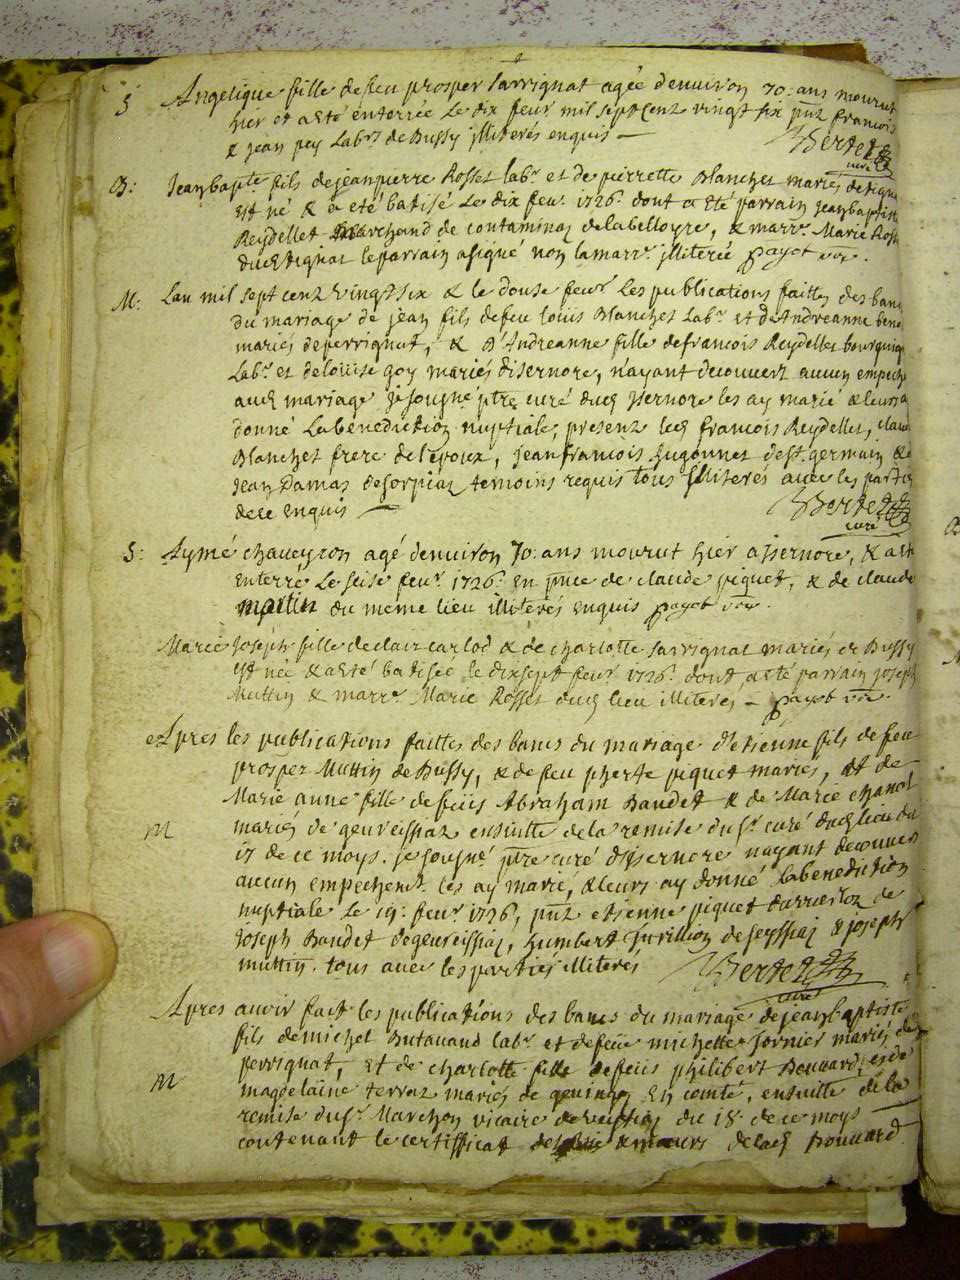 S Angelique fille de feu prosper Sarrignat agée denuiron 70: ans mourut
hier et a eté enterrée Le dix feur. mil sept cent vingt six pnt francois
& jean pey Labrs. de Bussy illiterés enquis — Bertet
curé
B: Jean bapte fils de jean pierre Rosset labr. et de pierrette Blanchet mariés
est né & a eté batisé Le dix feur. 1726. dont a eté parrain jean baptiste
Reydellet Marchand de contaminaz de labelloyre, & marr. Marie
dud le parrain a signé non la marr. illiterée payot
M: Lan mil sept cent vingt six & le douse feur Les publications faittes des bans
du mariage de jean fils de feu louis Blanchet Labr. et de Andreanne
mariés de perrignat, & D'Andreanne fille de francois Reydellet
Labr. et de louise goy mariés disernore, nayant decouuert aucun
aud mariage je sousigné ptre curé dud jsernore les ay marié & leurs
donné La benediction nuptiale, present led francois Reydellet,
Blanchet frere de l'epoux, jean francois hugonnet de st. germain &
jean Damas temoins requis tous illiterés auec les
de ce enquis — Bertet
curé
S: Aymé chaueyron agé denuiron 70: ans mourut hier a jsernore, & a
enterré Le seise feur. 1726. En pnce de claude piquet, & de claude
martin du méme lieu illiterés enquis payot
Marie joseph fille de clair carlod & de charlotte Sarrignat mariés Bussy
est née & a eté batisée le dixsept feur. 1726. dont a eté parrain joseph
Muttin & marr. Marie Rosset dud lieu illiterés — payot
Apres les publications faittes des bans du mariage d'etienne fils de feu
prosper Muttin de Bussy, & de feu piquet mariés, et de
Marie anne fille de feus Abraham Baudet & de Marie
M mariés de geureissiaz ensuitte de la remise du sr. curé dud lieu du
17 de ce moys. je sousigné ptre curé d'jsernore nayant decouuert
aucun empechent. les ay marié, & leurs ay donné la benediction
nuptiale Le 19: feur. 1726, pnt etienne piquet de
joseph Baudet de geureissiaz, humbert de & joseph
muttin. tous auec les partiés illiterés Bertet
curé
Apres auoir fait les publications des bans du mariage de jean baptiste
fils de michel Butauand labr. et de feüe michette fornier mariés de
perrignat, et de charlotte fille de feüs philibert Bouuard, et de
M magdelaine terraz mariés de en comté, ensuitte de la
remise du sr. Marchon vicaire du 18. de ce moys —
contenant le certifficat & moeurs de lad Bouuard.